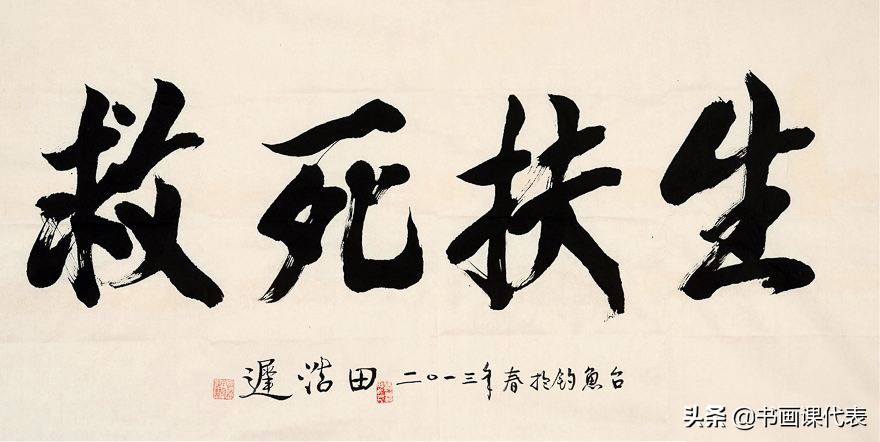 救死扶生
遲浩田 二〇一三年春於釣魚台
头条 @书画课代表